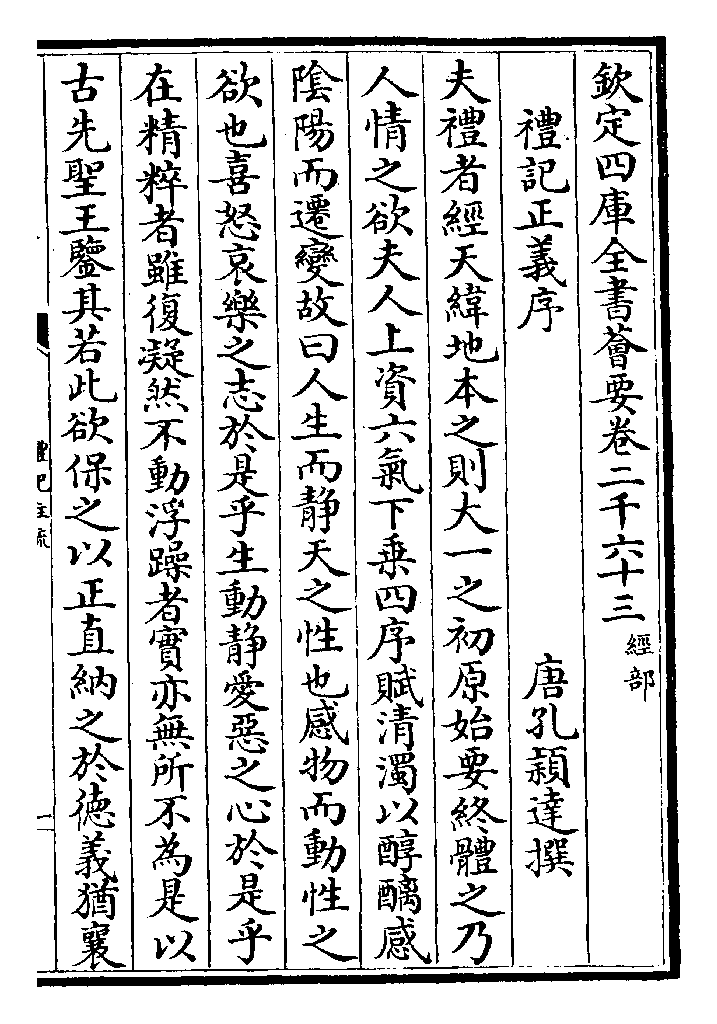 欽定四庫全書薈要卷二千六十三 經部
禮記正義序 唐孔穎達撰
夫禮者經天緯地本之則大一之初原始要終體之乃
人情之欲夫人上資六氣下乗四序賦清濁以醇醨感
隂陽而遷變故曰人生而静天之性也感物而動性之
欲也喜怒哀樂之志於是乎生動静愛惡之心於是乎
在精粹者雖復凝然不動浮躁者實亦無所不為是以
古先聖王鑒其若此欲保之以正直納之於徳義猶襄
禮記注疏
一